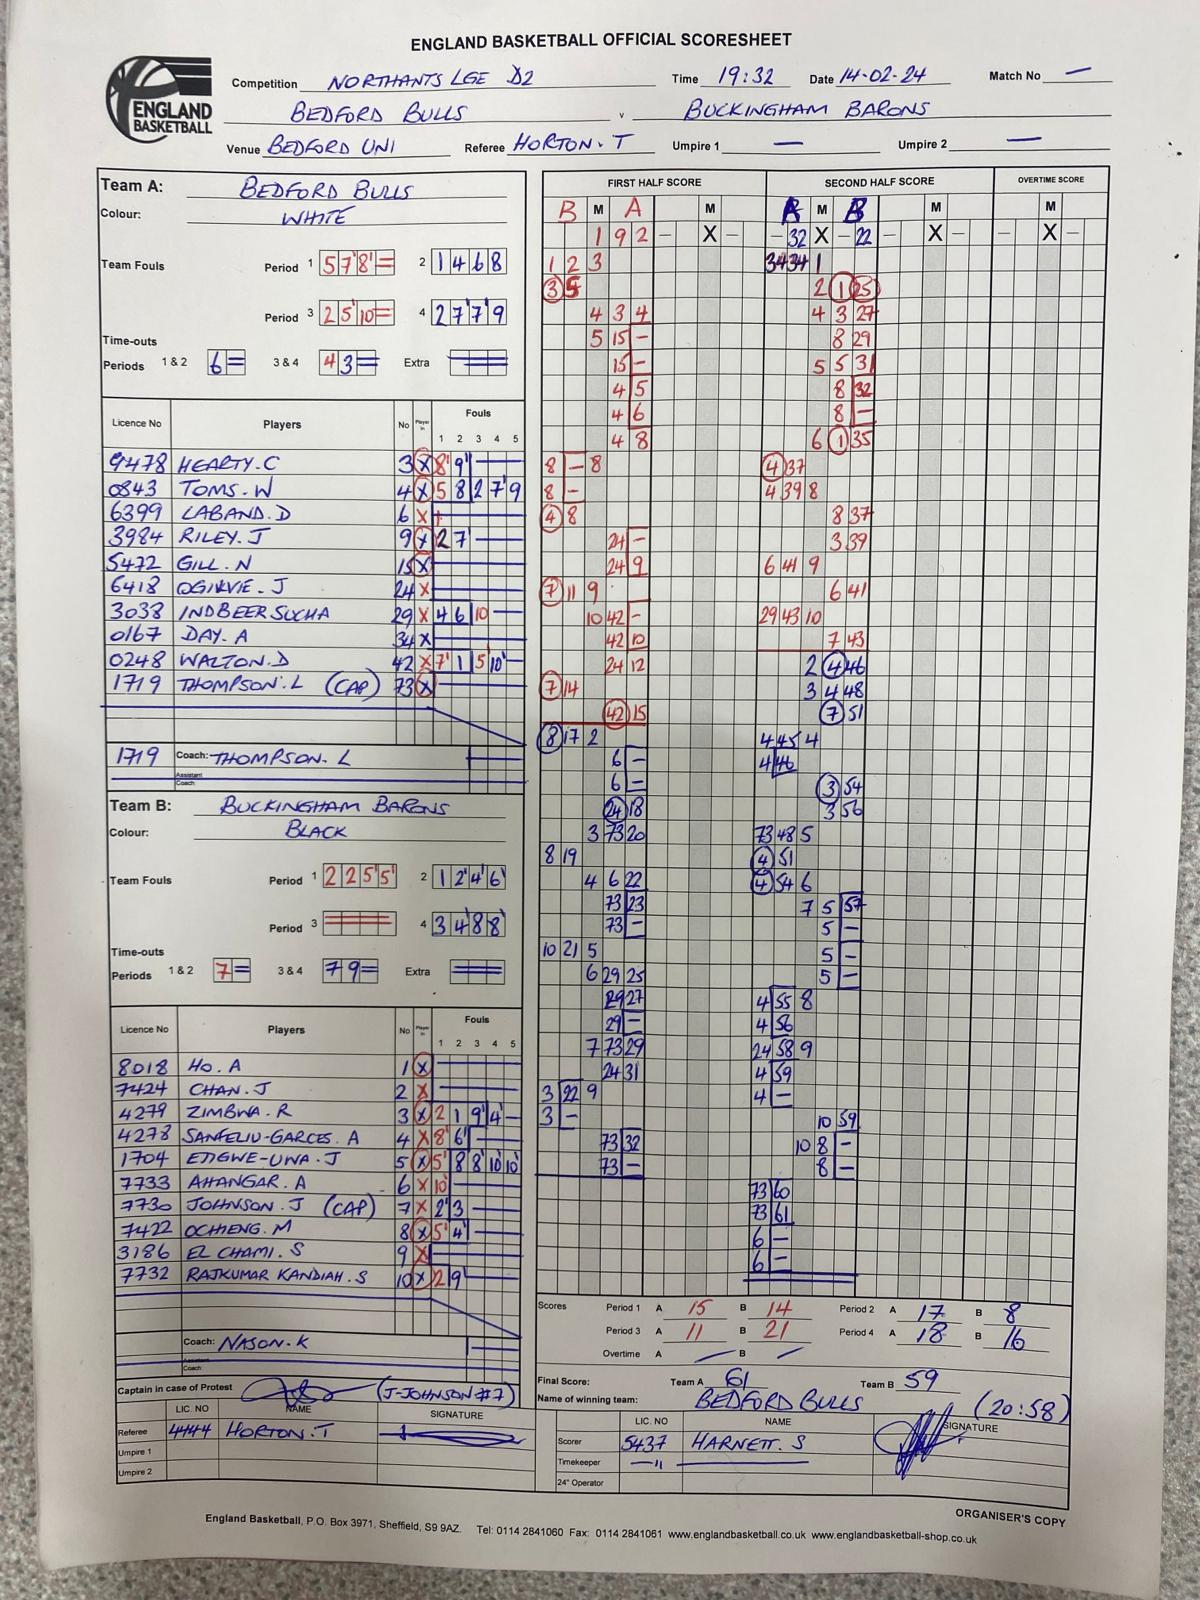 ENGLAND BASKETBALL OFFICIAL SCORESHEET
ENGLAND BASKETBALL
Competition NORTHANTS LGE D2 Time 19:32 Date 14-02-24 Match No —
BEDFORD BULLS v BUCKINGHAM BARONS
Venue BEDFORD UNI Referee HORTON.T Umpire 1 — Umpire 2 —
Team A: BEDFORD BULLS
Colour: WHITE
Team Fouls Period 1 5 7' 8' = 2 1 4 6 8
Period 3 2 5' 10 = 4 2 7' 7 9
Time-outs
Periods 1 & 2 6 = 3 & 4 4 3 = Extra
Licence No Players No Player in Fouls
1 2 3 4 5
9478 HEARTY.C 3 X 8' 9'
0843 TOMS.W 4 X 5 8 2 7' 9
6399 LABAND.D 6 X
3984 RILEY.J 9 X 2 7'
5472 GILL.N 15 X
6418 OGILVIE.J 24 X
3038 INDBEERSUCHA 29 X 4 6 10
0167 DAY.A 34 X
0248 WALTON.D 42 X 7' 1 5' 10'
1719 THOMPSON.L (CAP) 73 X
1719 Coach: THOMPSON.L
Assistant Coach
Team B: BUCKINGHAM BARONS
Colour: BLACK
Team Fouls Period 1 2 2 5' 5' 2 1 2' 4' 6'
Period 3 4 3 4' 8 8'
Time-outs
Periods 1 & 2 7 = 3 & 4 7 9 = Extra
Licence No Players No Player in Fouls
1 2 3 4 5
8018 HO.A 1 X
7424 CHAN.J 2 X
4279 ZIMBWA.R 3 X 2 1 9' 4'
4278 SANFELIU-GARCES.A 4 X 8' 6'
1704 ETIGWE-UWA.J 5 X 5' 8 8' 10 10'
7733 AHANGAR.A 6 X 10'
7730 JOHNSON.J (CAP) 7 X 2' 3
7422 OCHIENG.M 8 X 5' 4'
3186 EL CHAMI.S 9 X
7732 RAJKUMAR KANDIAH.S 10 X 2 9'
Coach: NASON.K
Assistant Coach
Captain in case of Protest (J-JOHNSON #7)
LIC. NO NAME SIGNATURE
Referee 4444 HORTON.T
Umpire 1
Umpire 2
FIRST HALF SCORE SECOND HALF SCORE OVERTIME SCORE
B M A M A M B M M
1 9 2 – X – – 32 X – 22 – X – – X –
1 2 3 34 34 1
3 5 2 1 25
4 3 4 4 3 27
5 15 – 8 29
15 – 5 5 31
4 5 8 32
4 6 8 –
4 8 6 1 35
8 – 8 4 37
8 – 4 39 8
4 8 8 37
24 – 3 39
24 9 6 41 9
7 11 9 6 41
10 42 – 29 43 10
42 10 7 43
24 12 2 4 46
7 14 3 4 48
42 15 7 51
8 17 2 4 45 4
6 – 4 46
6 – 3 54
24 18 3 56
3 73 20 73 48 5
8 19 4 51
4 6 22 4 54 6
73 23 7 5 57
73 – 5 –
10 21 5 5 –
6 29 25 5 –
29 27 4 55 8
29 – 4 56
7 73 29 24 58 9
24 31 4 59
3 22 9 4 –
3 – 10 59
73 32 10 8 –
73 – 8 –
73 60
73 61
6 –
6 –
Scores Period 1 A 15 B 14 Period 2 A 17 B 8
Period 3 A 11 B 21 Period 4 A 18 B 16
Overtime A — B —
Final Score: Team A 61 Team B 59
Name of winning team: BEDFORD BULLS (20:58)
LIC. NO NAME SIGNATURE
Scorer 5437 HARNETT.S
Timekeeper —"
24" Operator
ORGANISER'S COPY
England Basketball, P.O. Box 3971, Sheffield, S9 9AZ. Tel: 0114 2841060 Fax: 0114 2841061 www.englandbasketball.co.uk www.englandbasketball-shop.co.uk